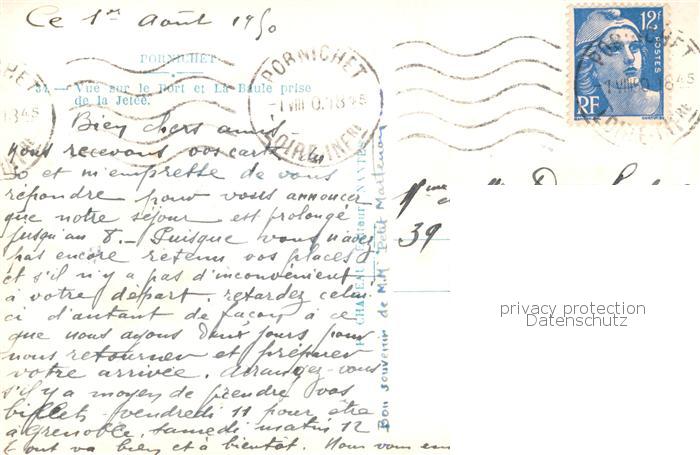 Ce 1er Août 1950
PORNICHET
31. — Vue sur le Port et La Baule prise
de la Jetée.
PORNICHET
-1 VIII 0. 1845
LOIRE INFRE
12F
POSTES
RF
Bien chers amis
nous recevons vos cartes du
30 et m'empresse de vous
répondre pour vous annoncer
que notre séjour est prolongé
jusqu'au 8. — Puisque vous n'avez
pas encore retenu vos places
et s'il n'y a pas d'inconvénient
à votre départ, retardez celui
ci d'autant de façon à ce
que nous ayons deux jours pour
nous retourner et préparer
votre arrivée. Arrangez-vous
s'il y a moyen de prendre vos
billets vendredi 11 pour être
à Grenoble samedi matin 12
Tout va bien et à bientôt. Nous vous em
NANTES
Bon souvenir de M.M. Petit
39
privacy protection
Datenschutz